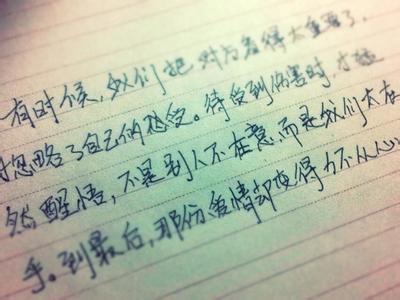 有时候,我们把对方看得太重要了,
忽略了自己的感受。待受到伤害时,才
然醒悟,不是别人不在意,而是我们太在
乎。到最后,那份爱情却变得力不从心